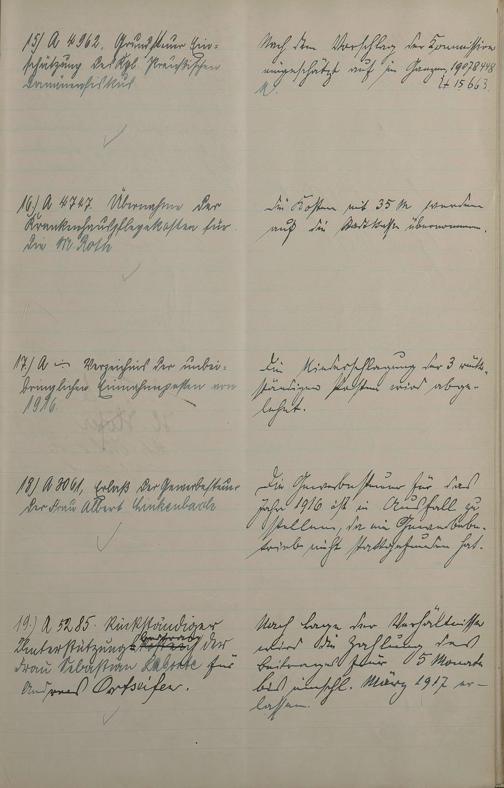 15) A 4962. Grundsteuer Ein-
schätzung des Kgl. Preußischen
Domänenfiskus
Nach dem Vorschlag der Kommission
eingeschätzt auf im Ganzen 19078448
M.
16.) A 4747. Übernahme der
Krankenhauspflegekosten für
die M. Roth
Die Kosten mit 35 M werden
auf die Stadtkasse übernommen.
17.) A — Verzeichnis der unbei-
bringlichen Einnahmeposten von
1916.
Die Niederschlagung der 3 rück-
ständigen Posten wird abge-
lehnt.
18) A 3061, Erlaß der Gewerbesteuer
der Frau Albert Linkenbach
Die Gewerbesteuer für das
Jahr 1916 ist in Ausfall zu
stellen, da ein Gewerbebe-
trieb nicht stattgefunden hat.
19.) A 5285. Rückständiger
Unterstützungsbeitrag der
Frau Sebastian für
Andreas Ortseifen.
Nach Lage der Verhältnisse
wird die Zahlung des
Beitrages für 5 Monate
bis einschl. März 1917 er-
lassen.